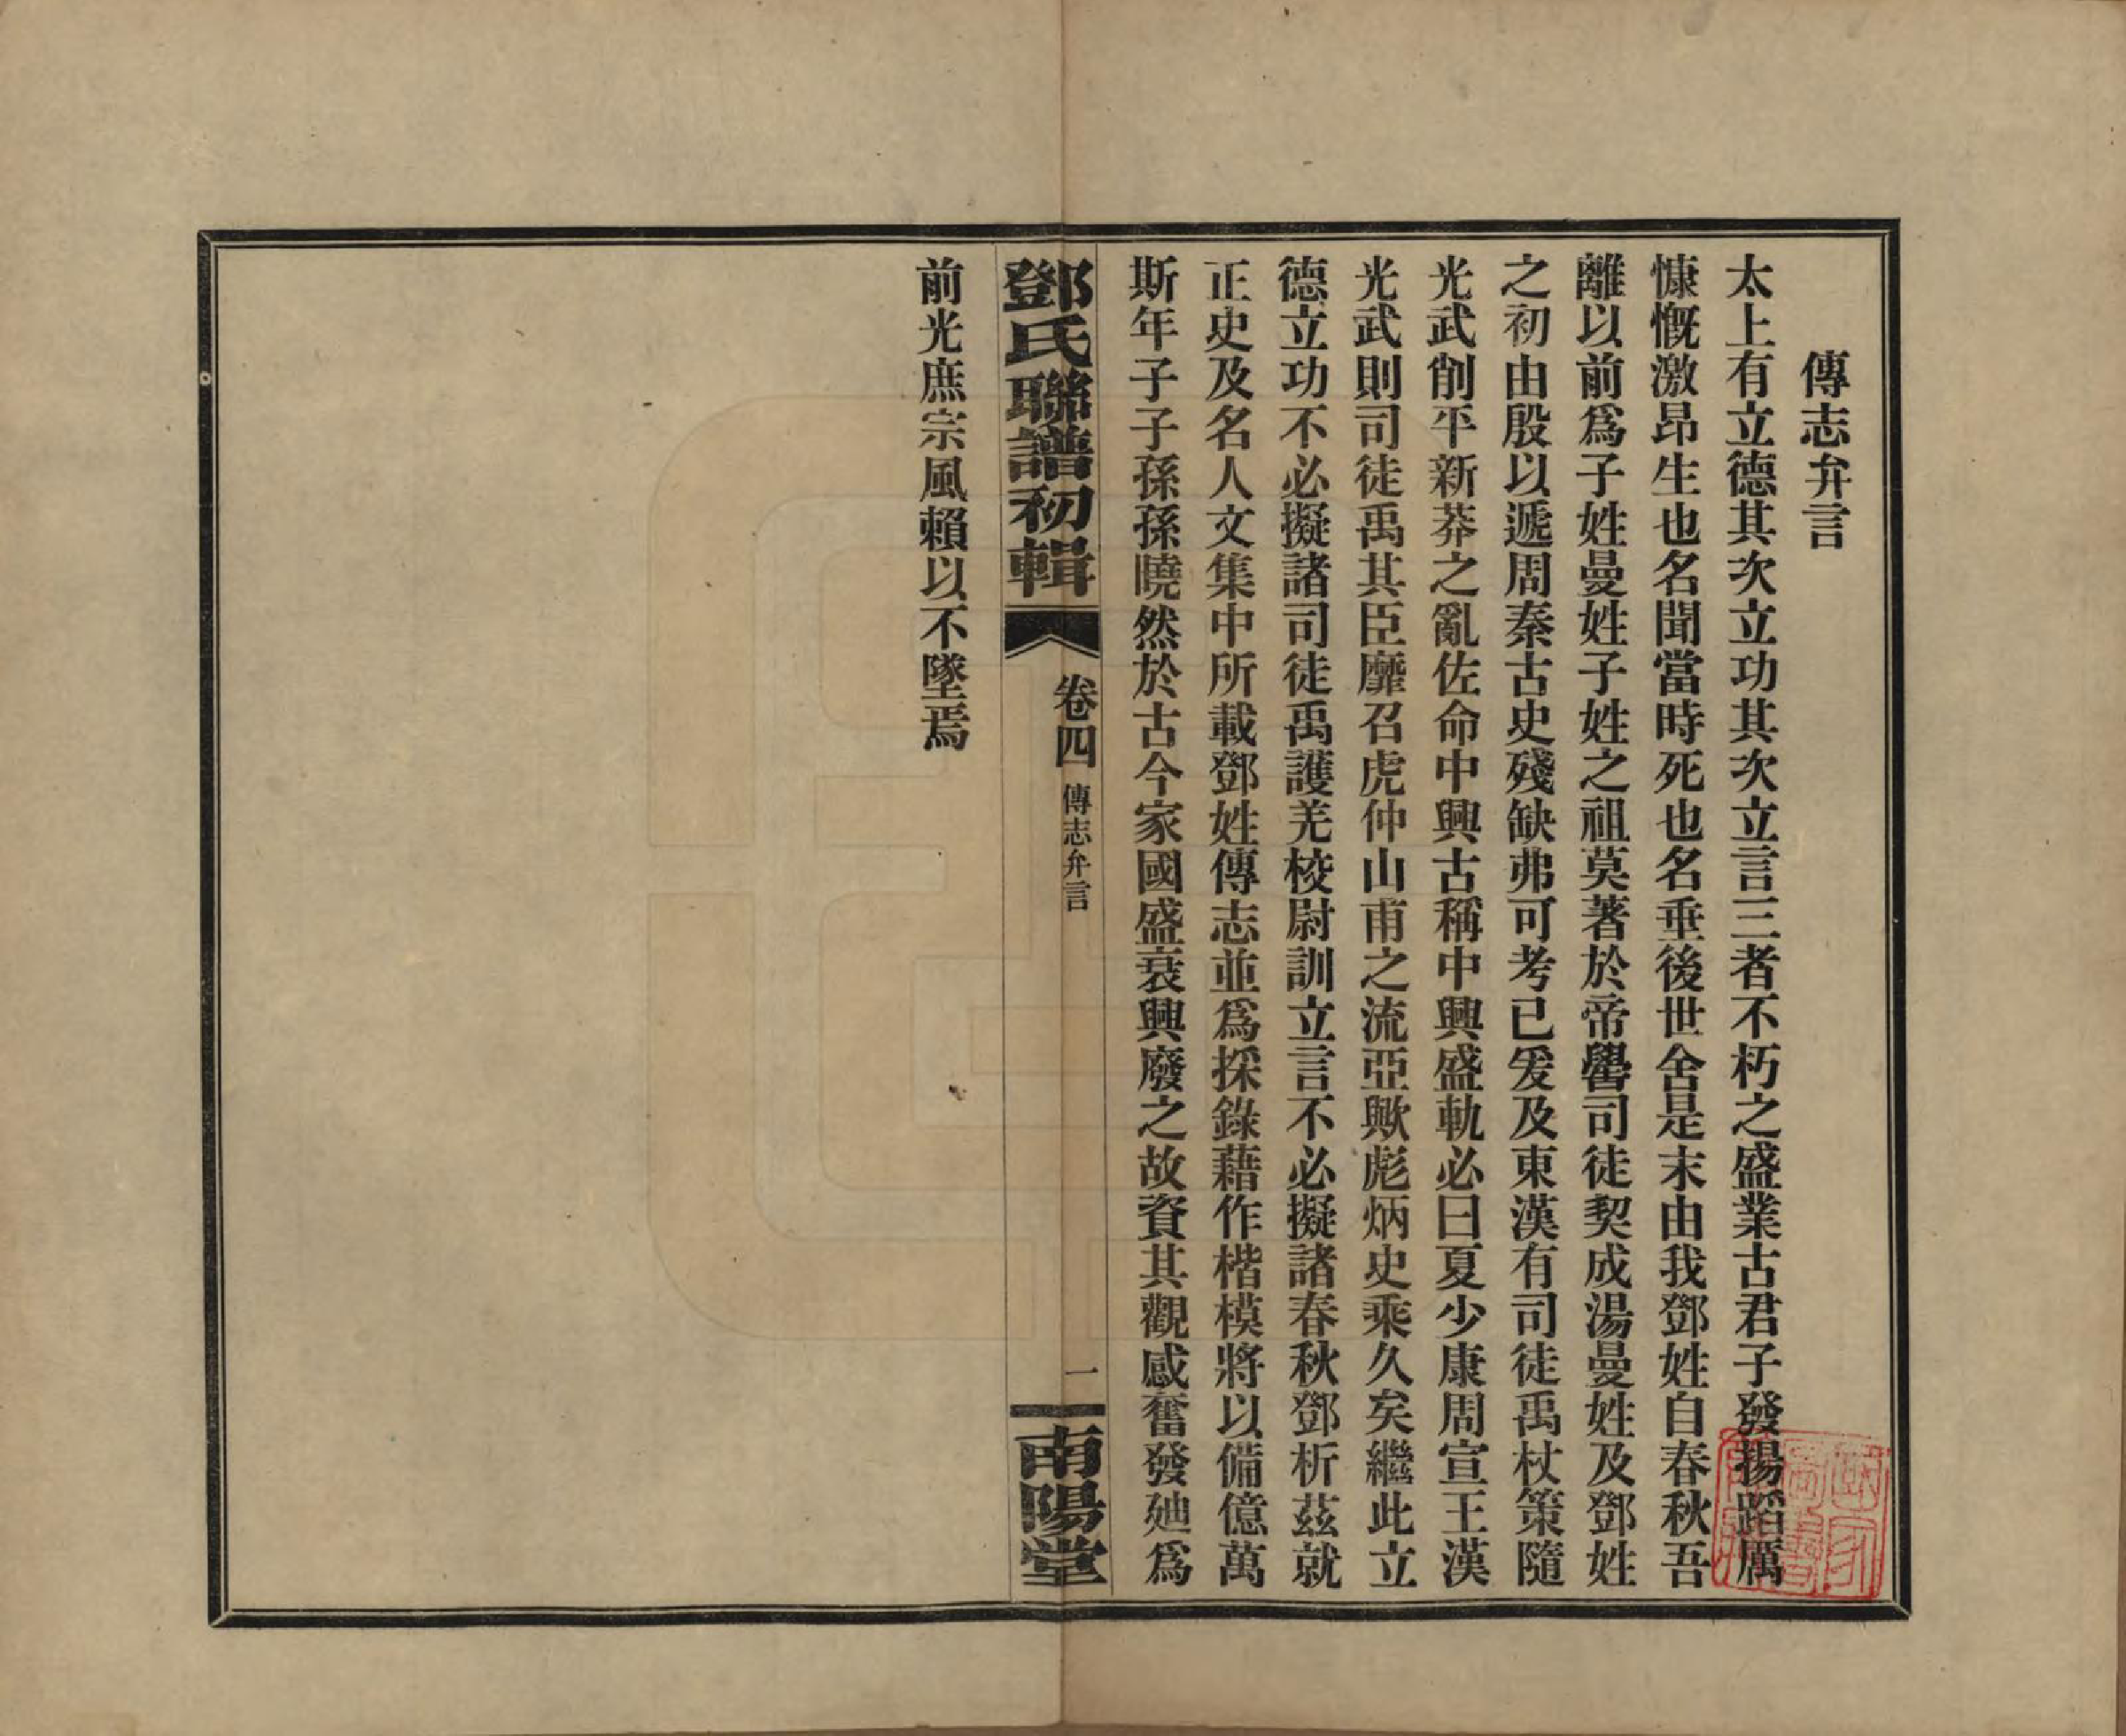 傳志弁言
太上有立德其次立功其次立言三者不朽之盛業古君子發揚蹈厲
慷慨激昂生也名聞當時死也名垂後世舍是末由我鄧姓自春秋吾
離以前爲子姓曼姓子姓之祖莫著於帝嚳司徒契成湯曼姓及鄧姓
之初由殷以遞周秦古史殘缺弗可考已爰及東漢有司徒禹杖策隨
光武削平新莽之亂佐命中興古稱中興盛軌必曰夏少康周宣王漢
光武則司徒禹其臣靡召虎仲山甫之流亞歟彪炳史乘久矣繼此立
德立功不必擬諸司徒禹護羌校尉訓立言不必擬諸春秋鄧析茲就
正史及名人文集中所載鄧姓傳志並爲採錄藉作楷模將以備億萬
斯年子子孫孫曉然於古今家國盛衰興廢之故資其觀感奮發廸爲
鄧氏聯譜初輯
卷四
傳志弁言
一
南陽堂
前光庶宗風賴以不墜焉